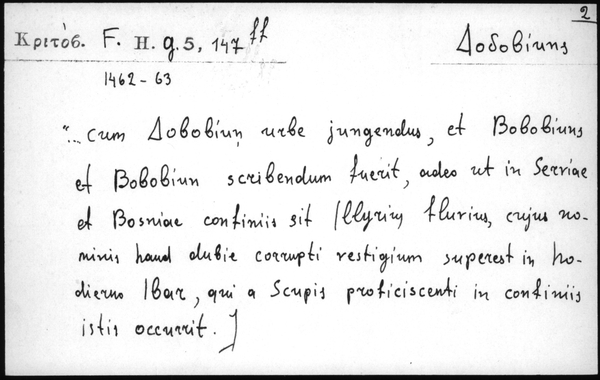 2
Κριτόβ. F. H. g. 5, 147 ff
Δοβοβίιης
1462 - 63
"... cum Δοβοβίιη urbe jungendus, et Βοβοβίιης
et Βοβοβίιη scribendum fuerit, adeo ut in Serviae
et Bosniae confiniis sit Illyrius fluvius, cujus no-
minis haud dubie corrupti vestigium superest in ho-
dierno Ibar, qui a Scupis proficiscenti in confiniis
istis occurrit.]